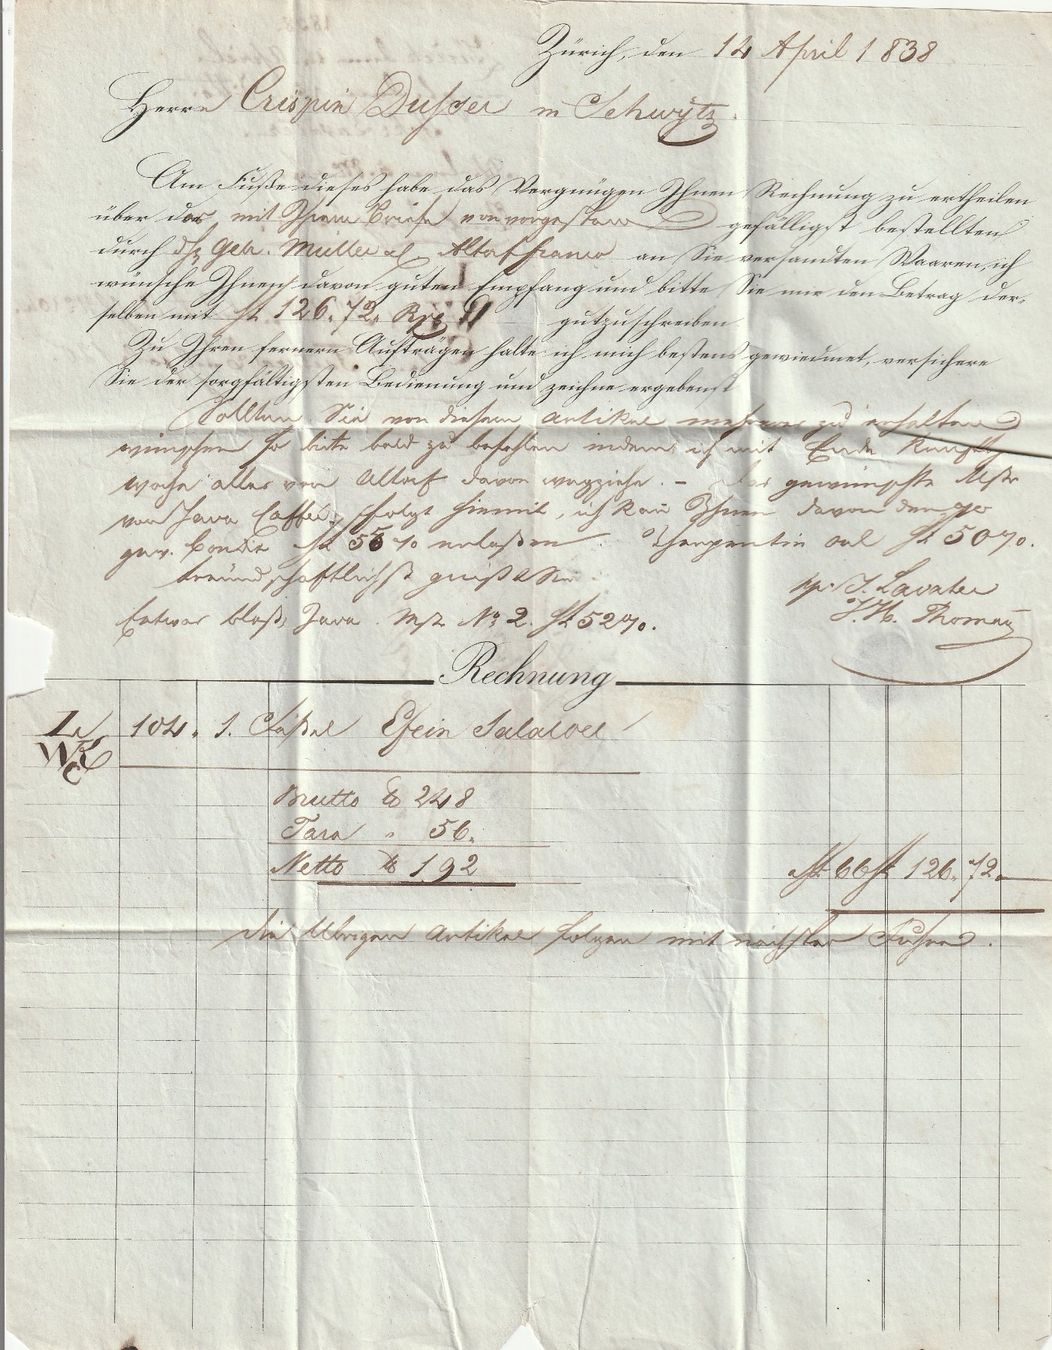 Zürich, den 14 April 1838
Herrn Crispin Dusser in Schwytz.
Am Fuße dieses habe das Vergnügen Ihnen Rechnung zu ertheilen
über das mit Ihrem Briefe von vorgestern gefälligst bestellten
durch Geb. Müller Altorf franco an Sie versandten Waaren, ich
wünsche Ihnen davon guten Empfang und bitte Sie mir den Betrag der-
selben mit 126. 72. gutzuschreiben
Zu Ihren fernern Aufträgen halte ich mich bestens gewiedmet, versichere
Sie der sorgfältigsten Bedienung und zeichne ergebenst
Sollten Sie von diesem Artikel mehreres zu erhalten
wünschen so bitte bald zu befehlen indem ich mit Ende
Woche alles von Altorf davon wegziehe. – Das gewünschte Mstr
von Java Caffee, folgt hiemit, ich kan Ihnen davon
gew. Condit 55 % erlaßen Therpentin oel 50 %.
freundschaftlichst grüßt Sie
pp. J. Lavater
Etwas blaß Java Mstr N° 2. 52 %.
J. H. Thomann
Rechnung
104. 1. Faßel Ffein Salatoel
Brutto ℔ 248
Tara " 56.
Netto ℔ 192 66 126. 72.
die Übrigen Artikel folgen mit nächster Fuhre.